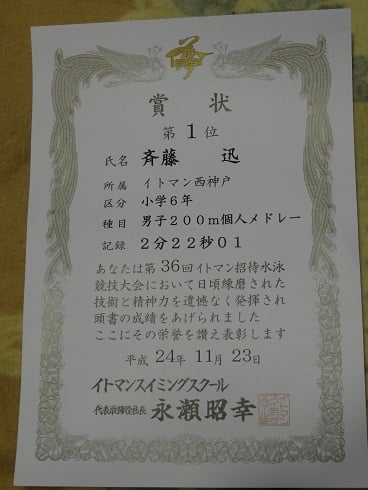 賞状
第1位
氏名 斉藤 迅
所属 イトマン西神戸
区分 小学6年
種目 男子200m個人メドレー
記録 2分22秒01
あなたは第36回イトマン招待水泳
競技大会において日頃練磨された
技術と精神力を遺憾なく発揮され
頭書の成績をあげられました
ここにその栄誉を讃え表彰します
平成 24年 11月 23日
イトマンスイミングスクール
代表取締役社長 永瀬昭幸